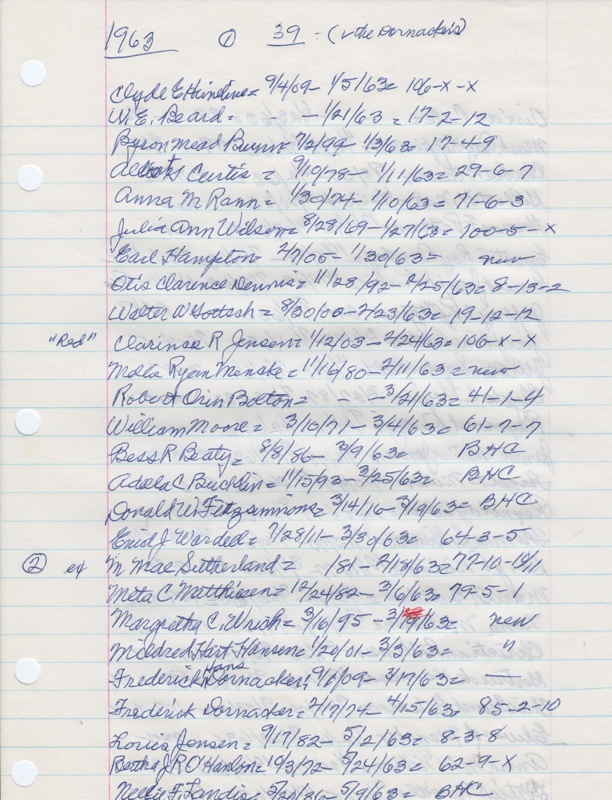 1963 ① 39 - (& the Dornackers)
Clyde E = 9/4/09 - 1/5/63 = 106-x-x
W. E. Beard = - - 1/21/63 = 17-2-12
Byron Mead = 7/2/99 - 1/3/63 = 17-4-9
Curtis = 9/10/78 - 1/11/63 = 29-6-7
Anna M Rann = 1/30/74 - 1/10/63 = 71-6-3
Julia Ann Wilson = 8/28/69 - 1/27/63 = 100-5-x
Earl Hampton = 2/7/05 - 1/30/63 = new
Otis Clarence Dennis = 11/28/92 - 2/25/63 = 8-13-2
Walter W = 8/30/00 - 2/23/63 = 19-12-12
"Red" Clarence R Jensen = 1/12/03 - 2/24/63 = 106-x-x
Ryan Menske = 11/16/80 - 2/11/63 = new
Robert Orin Bolton = - - 3/21/63 = 41-1-4
William Moore = 3/10/71 - 3/4/63 = 61-7-7
Bess R Beaty = 8/8/86 - 3/9/63 = BHC
Adela C Bucklin = 11/15/93 - 3/25/63 = BHC
Donald W Fitzsimmons = 3/14/16 - 3/19/63 = BHC
Enid J. Warded = 7/28/11 - 3/30/63 = 64-3-5
② M Mae Sutherland = /81 - 2/18/63 = 77-10-
Meta C Matthiesen = 12/24/82 - 3/6/63 = 79-5-1
Margretha C. Ulrich = 3/16/95 - 3/ /63 = new
Mildred Hart Hansen = 1/20/01 - 3/3/63 = "
Frederick Hans Dornacker = 9/6/09 - 3/17/63 = —
Frederick Dornacker = 2/17/74 - 4/15/63 = 85-2-10
Louis Jensen = 9/17/82 - 5/2/63 = 8-3-8
Bertha J.R. O'Hanlon = 10/3/72 - 5/24/63 = 62-9-x
Nellie F. Landis = 5/20/86 - 5/9/63 = BHC